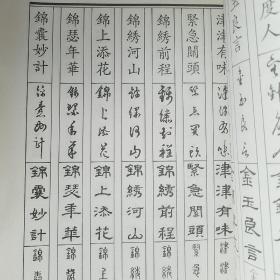 金玉良言
津津有味 津津有味 津津有味 津津
緊急關頭 緊急關頭 緊急關頭 緊急
錦綉前程 錦綉前程 錦綉前程 錦綉
錦綉河山 錦綉河山 錦綉河山 錦
錦上添花 錦上添花 錦上添花 錦上
錦瑟年華 錦瑟年華 錦瑟年華 錦
錦囊妙計 錦囊妙計 錦囊妙計 錦